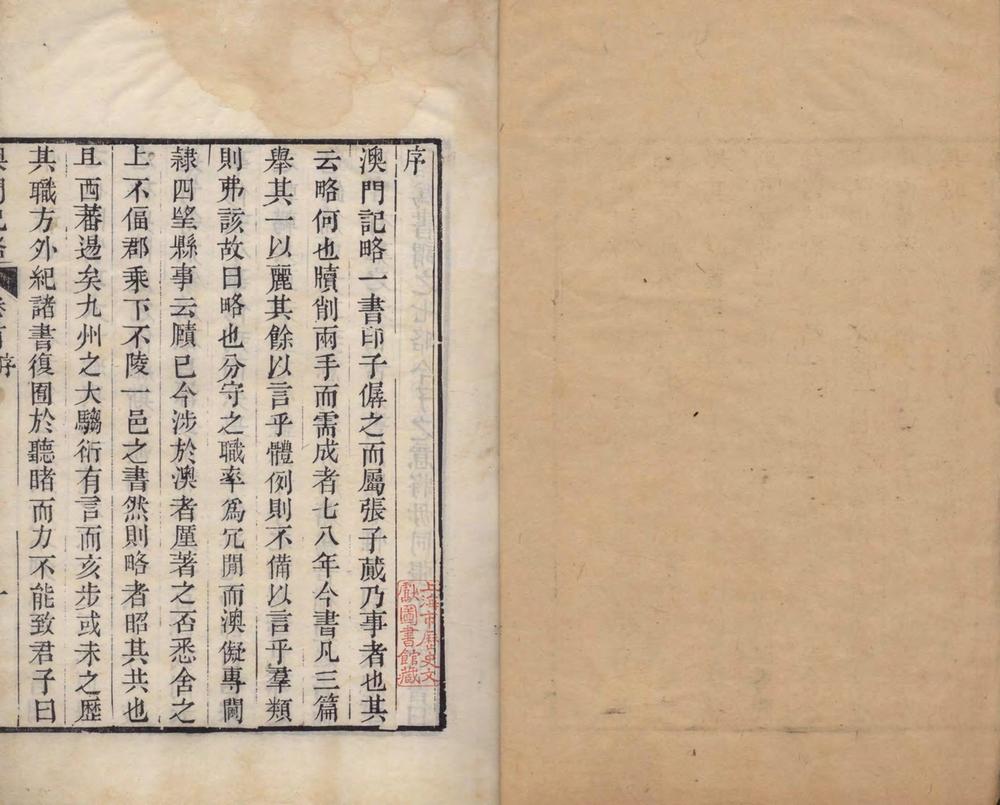 序
澳門記略一書印子僝之而屬張子蕆乃事者也其
云略何也牘削兩手而需成者七八年今書凡三篇
舉其一以麗其餘以言乎體例則不備以言乎羣類
則弗該故曰略也分守之職率爲冗閒而澳儗專閫
隷四埊縣事云賾已今涉於澳者厪著之否悉舍之
上不偪郡乘下不陵一邑之書然則略者昭其共也
且西蕃逿矣九州之大騶衍有言而亥步或未之歷
其職方外紀諸書復囿於聽睹而力不能致君子曰
澳門記略 卷首 序 一
上海市歷史文
獻圖書館藏